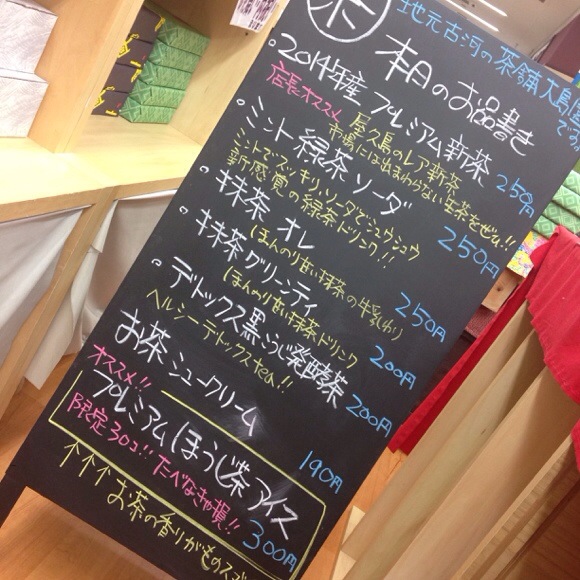 地元古河の茶舗大島屋
です
本日のお品書き
・2014年産 プレミアム新茶 250円
店長オススメ 屋久島のレア新茶
市場には出まわらない生茶をぜひ!!
・ミント緑茶ソーダ 250円
ミントでスッキリ、ソーダでシュワシュワ
新感覚の緑茶ドリンク!!
・抹茶 オレ 250円
ほんのり甘い抹茶の牛乳わり
・抹茶グリーンティ 200円
ほんのり甘い抹茶ドリンク
・デトックス黒こうじ発酵茶 200円
ヘルシーデトックスtea!!
お茶シュークリーム 190円
オススメ!!
プレミアムほうじ茶アイス 300円
限定30コ!! たべなきゃ損!!
↑↑↑ お茶の香りがものスゴ